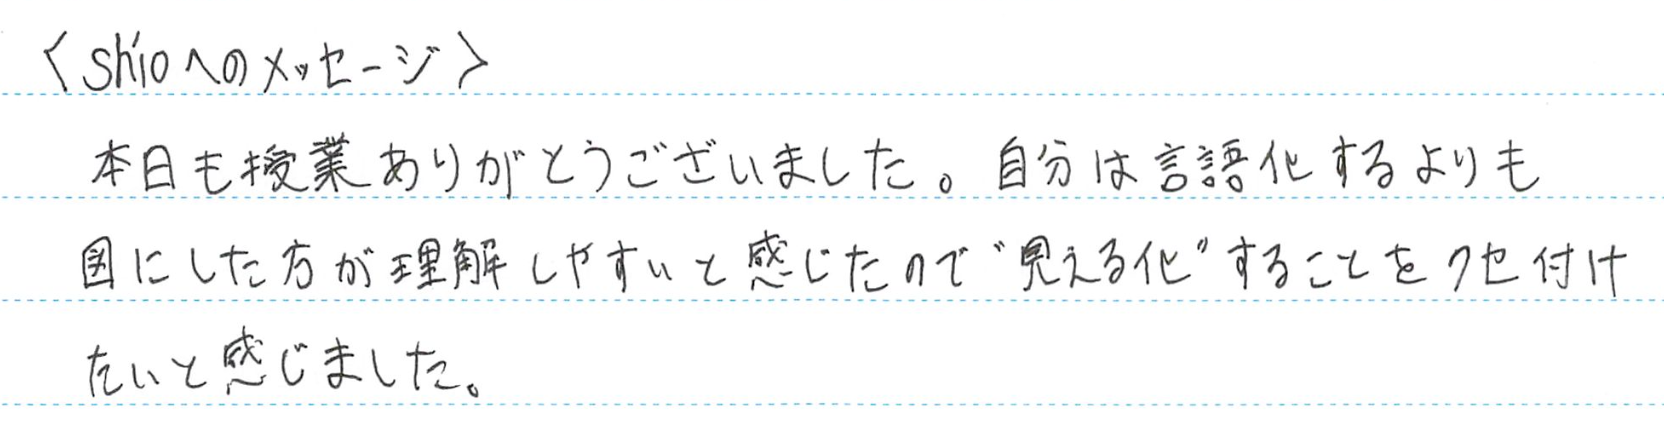 〈shioへのメッセージ〉
本日も授業ありがとうございました。自分は言語化するよりも
図にした方が理解しやすいと感じたので"見える化"することをクセ付け
たいと感じました。